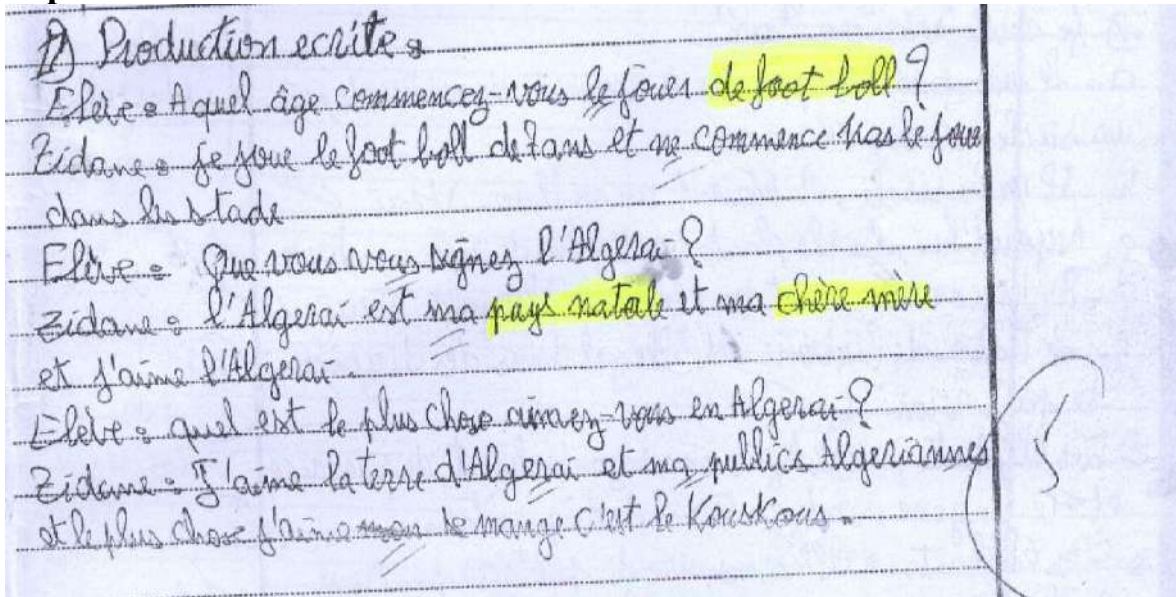 2) Production ecrite :
Elève : Aquel âge commencez-vous le jouer de foot boll ?
Zidane : je joue le foot boll de 7 ans et ne commence pas le joue
dans les stade
Elève : Que vous vous signez l'Algerai ?
Zidane : l'Algerai est ma pays natale et ma chère mère
et j'aime l'Algerai.
Elève : quel est le plus chose aimez-vous en Algerai ?
Zidane : J'aime la terre d'Algerai et ma publics Algeriannes
et le plus chose j'aime le mange c'est le KousKous.